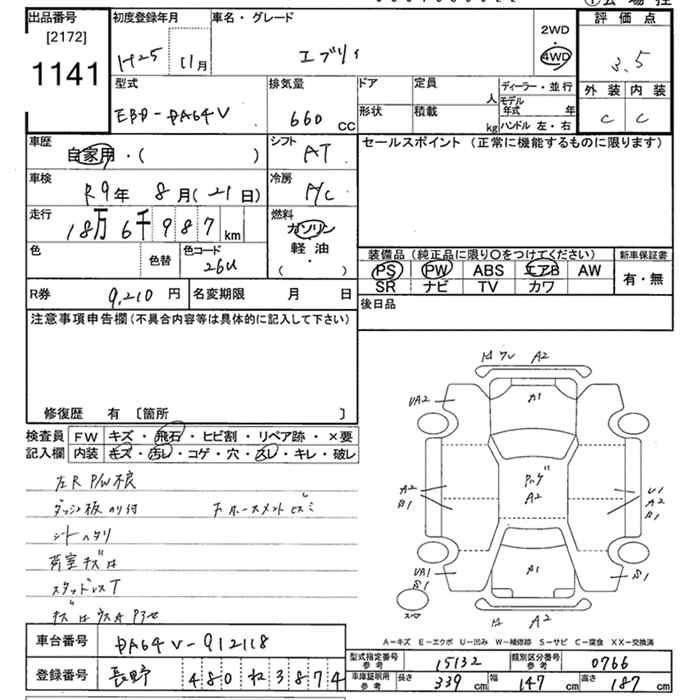 出品番号 初度登録年月 車名・グレード 評価点
[2172] H25 11月 エブリイ 2WD
1141 4WD 3.5
型式 排気量 ドア 定員 人 ディーラー・並行 外装 内装
EBD-DA64V 660 CC 形状 積載 kg モデル年式 年 C C
ハンドル 左・右
車歴 自家用・( ) シフト AT セールスポイント (正常に機能するものに限ります)
車検 R9年 8月(21日) 冷房 A/C
走行 18万6千987km 燃料 ガソリン
軽油
・
( )
色 色替 色コード 26U
装備品 (純正品に限り〇をつけてください) 新車保証書
PS PW ABS エアB AW 有・無
SR ナビ TV カワ
R券 9,210円 名変期限 月 日 後日品
注意事項申告欄(不具合内容等は具体的に記入して下さい)
修復歴 有 〔箇所 〕
検査員 FW キズ・飛石・ヒビ割・リペア跡・×要
記入欄 内装 キズ・汚レ・コゲ・穴・スレ・キレ・破レ
左R P/W不良
ダッシュ板のり付
シートヘタリ
荷室キズ
スタッドレスT
A2
UA2 A1
A2 A2 U1
B1 A2
B1
UA1 A1 B1
B1
A2
A-キズ E-エクボ U-凹み W-補修跡 S-サビ C-腐食 XX-交換済
車台番号 DA64V-912118
型式指定番号 参考 15132 類別区分番号 参考 0766
登録番号 長野 480 3874
車庫証明用 参考 長さ 339cm 幅 147cm 高さ 187cm